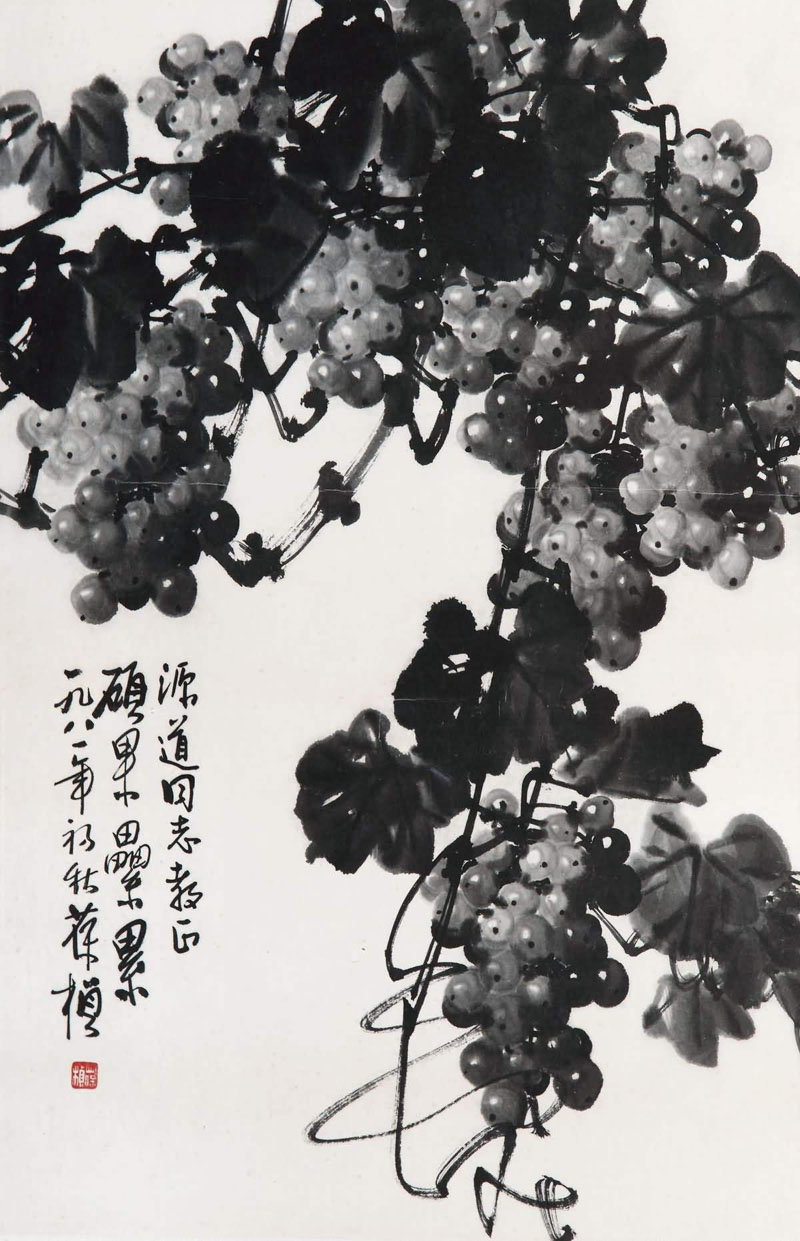 源道同志教正
硕果累累
一九八一年初秋葆桢
葆桢